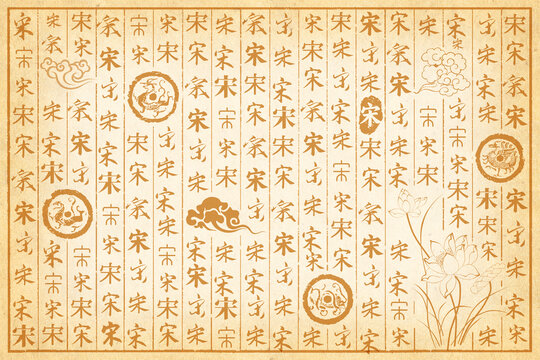 宋宋宋宋宋宋宋宋宋宋
宋宋宋宋宋宋宋宋宋
宋宋宋宋宋宋宋
宋宋宋宋宋宋
宋宋宋宋宋宋宋宋宋宋
宋宋宋宋宋宋宋宋宋宋宋宋
宋宋宋宋宋宋宋宋宋宋
宋宋宋宋宋宋宋宋宋宋
宋宋宋宋宋宋宋宋宋宋宋宋
宋宋宋宋宋宋宋宋宋宋宋宋
宋宋宋宋宋宋宋宋宋宋
宋宋宋宋宋宋宋宋宋宋
宋宋宋宋宋宋宋宋宋宋
宋宋宋宋宋宋宋宋宋宋
宋宋宋宋宋宋宋宋宋宋宋宋
宋宋宋宋宋宋宋宋宋宋
宋宋宋宋宋宋宋宋宋
宋宋宋宋宋宋宋宋宋宋宋宋